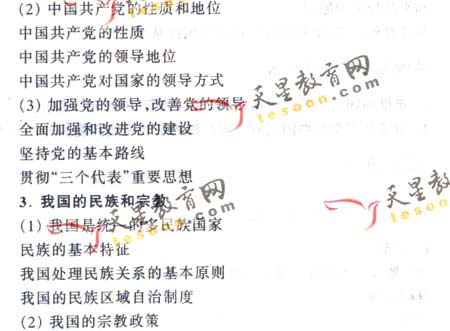 (2) 中国共产党的性质和地位
中国共产党的性质
中国共产党的领导地位
中国共产党对国家的领导方式
(3) 加强党的领导,改善党的领导
全面加强和改进党的建设
坚持党的基本路线
贯彻“三个代表”重要思想
3. 我国的民族和宗教
(1) 我国是统一的多民族国家
民族的基本特征
我国处理民族关系的基本原则
我国的民族区域自治制度
(2) 我国的宗教政策
天星教育网
tesoon.com
天星教育网
tesoon.com
天星教
tesoon